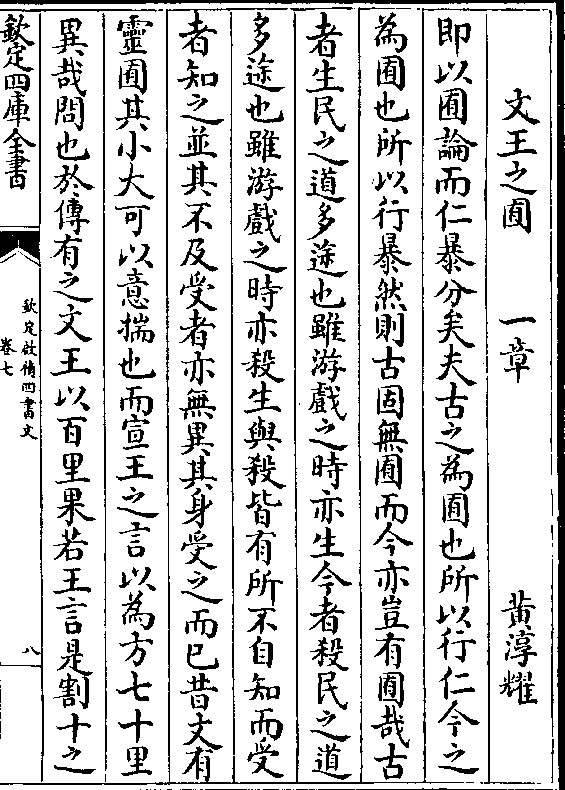 文王之囿　一章　黃淳耀
即以囿論而仁暴分矣夫古之為囿也所以行仁今之
為囿也所以行暴然則古固無囿而今亦豈有囿哉古
者生民之道多途也雖游戲之時亦生今者殺民之道
多途也雖游戲之時亦殺生與殺皆有所不自知而受
者知之並其不及受者亦無異其身受之而已昔文有
靈囿其小大可以意揣也而宣王之言以為方七十里
異哉問也於傳有之文王以百里果若王言是割十之
欽定四庫全書
欽定啟禎四書文
卷七
八